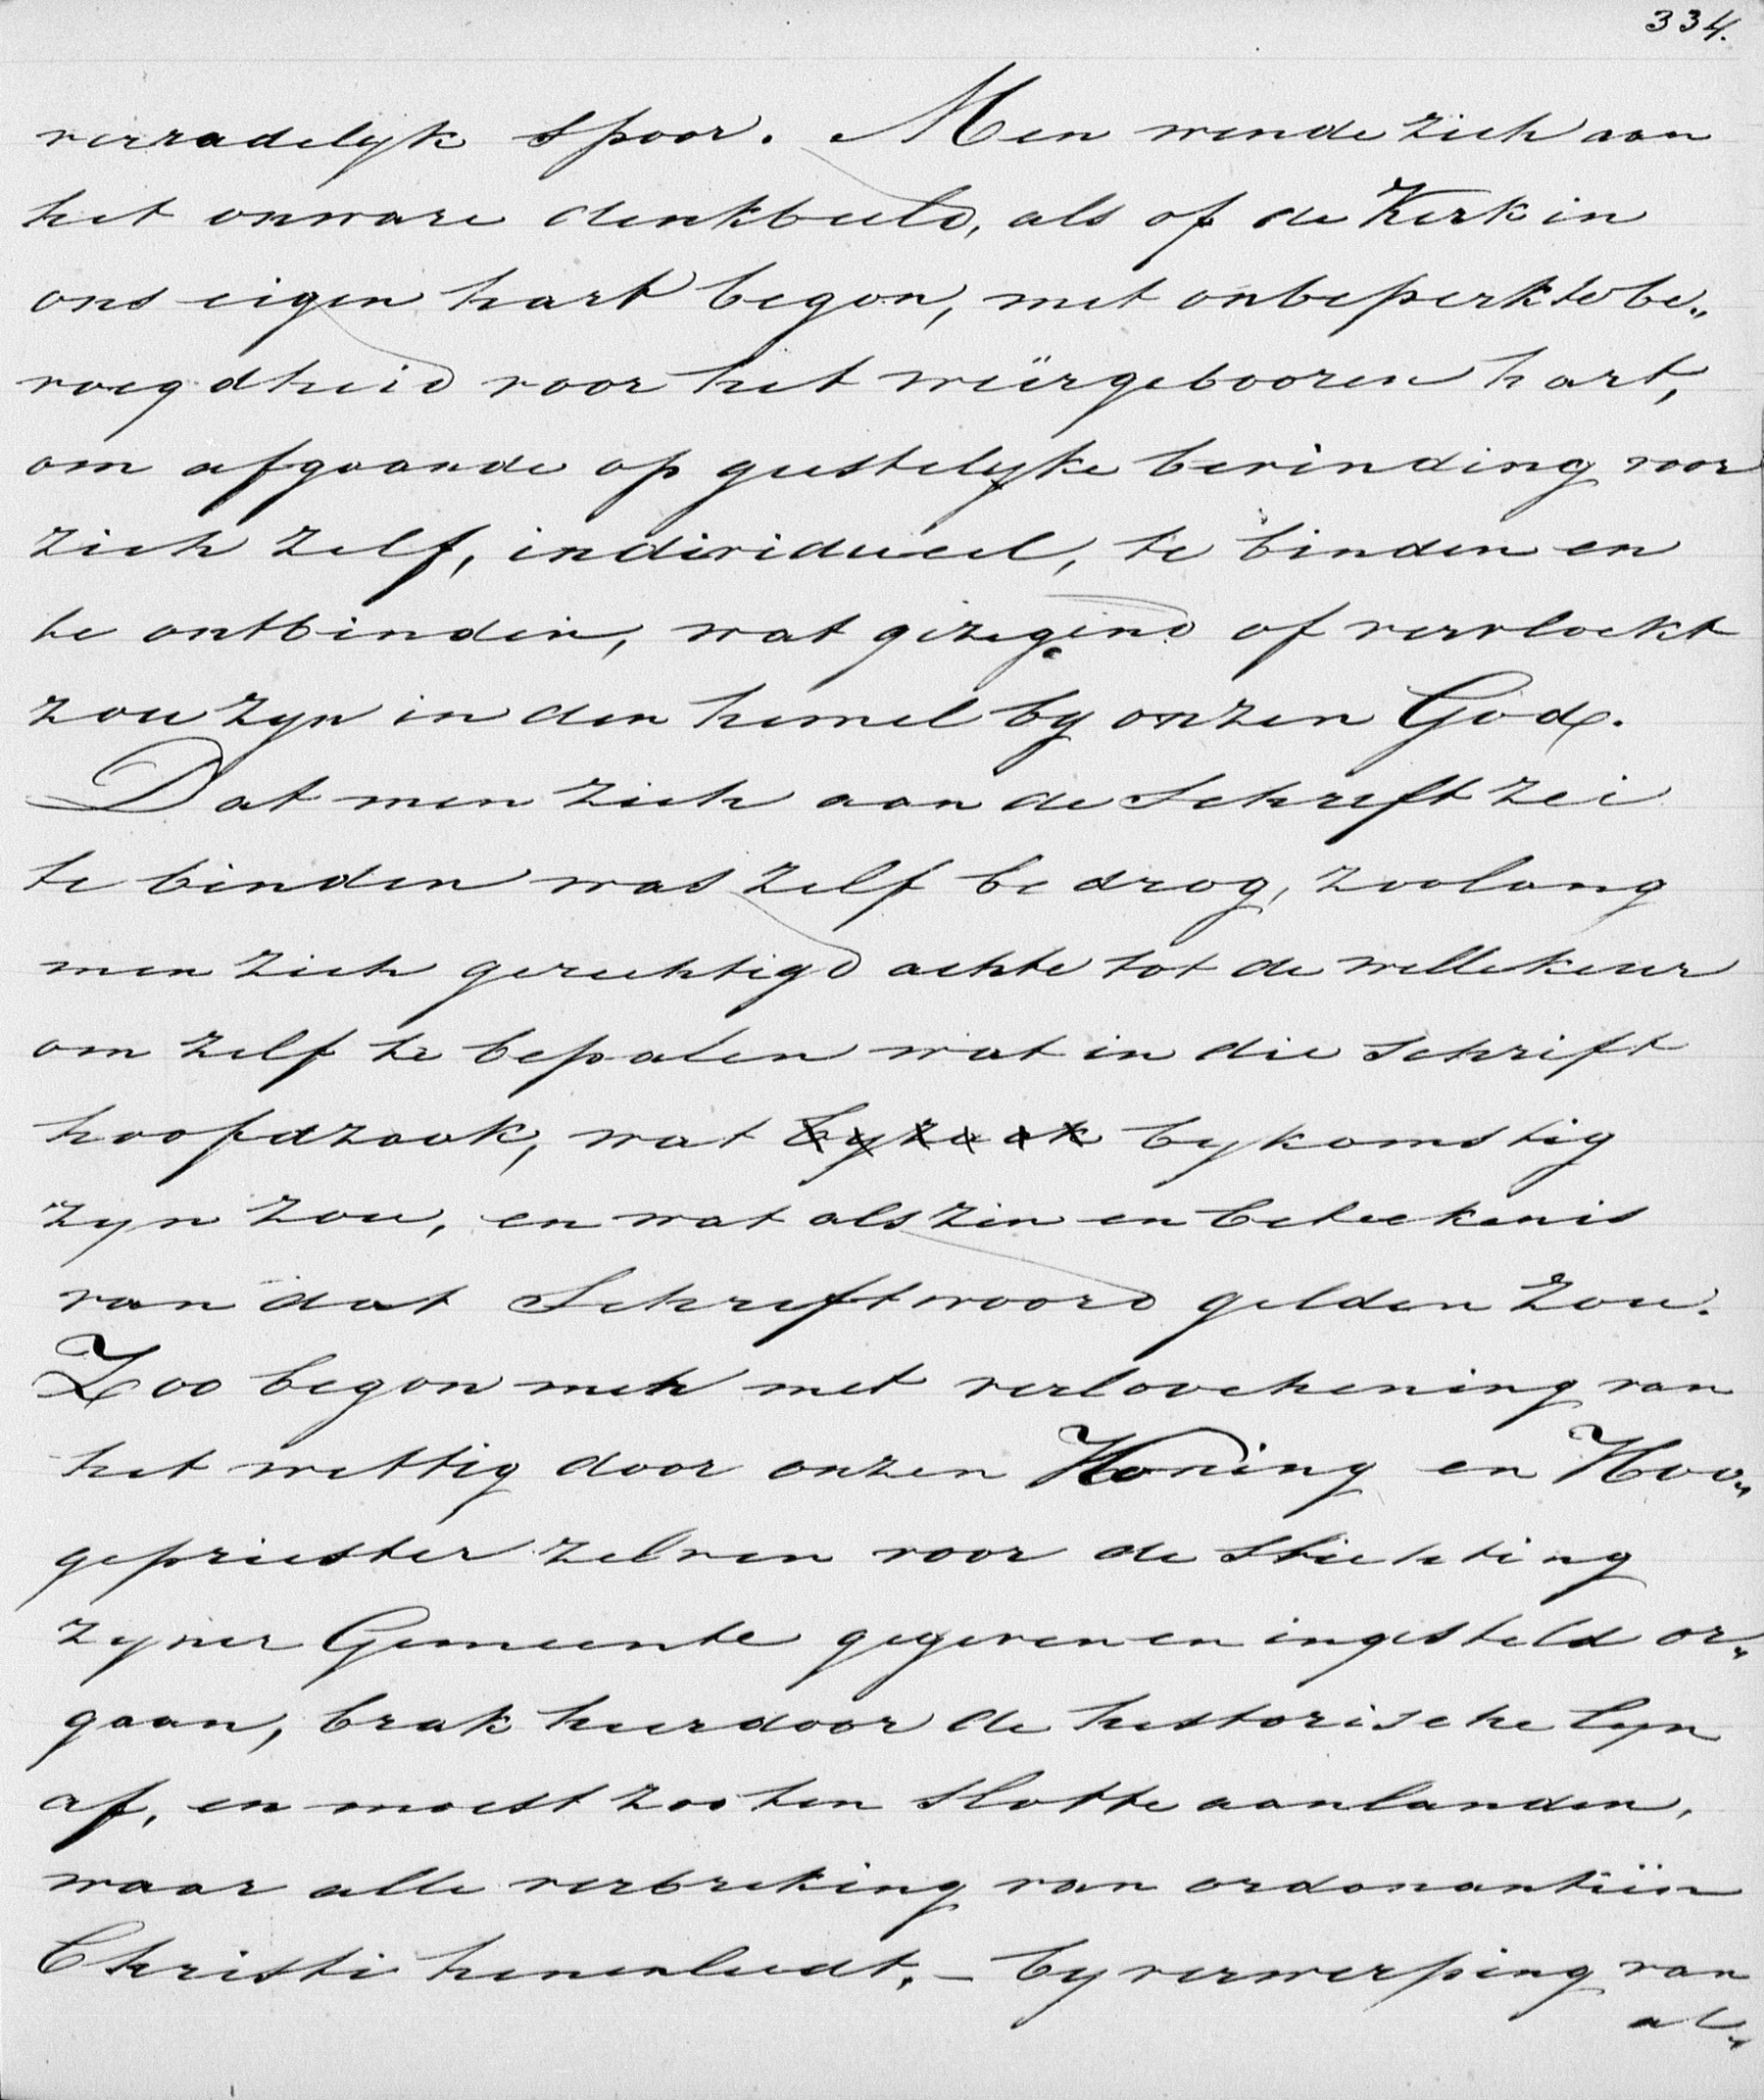 334.
verradelyk spoor. Men wende zich aan
het onware denkbeeld, als of de Kerk in
ons eigen hart begon, met onbeperkte be„
voegdheid voor het weêrgebooren hart,
om afgaande op geestelyke bevinding voor
zich zelf, individueel, te binden en
te ontbinden, wat gezegend of vervloekt
zou zyn in den hemel by onzen God.
Dat men zich aan de Schrift zei
te binden was zelf bedrog, zoolang
men zich gerechtigd achte tot de willekeur
om zelf te bepalen wat in die schrift
hoofdzaak, wat byzaak bykomstig
zyn zou, en wat als zin en beteekenis
van dat Schriftwoord gelden zou.
Zoo begon men met verloochening van
het wettig door onzen Koning en Hoo„
gepriester zelven voor de stichting
zyner Gemeente gegeven en ingesteld or„
gaan, brak hierdoor de historische lyn
af, en moest zoo ten slotte aanlanden,
waar alle verbreking van ordonantiën
Christi henenleidt, – by verwerping van
al„